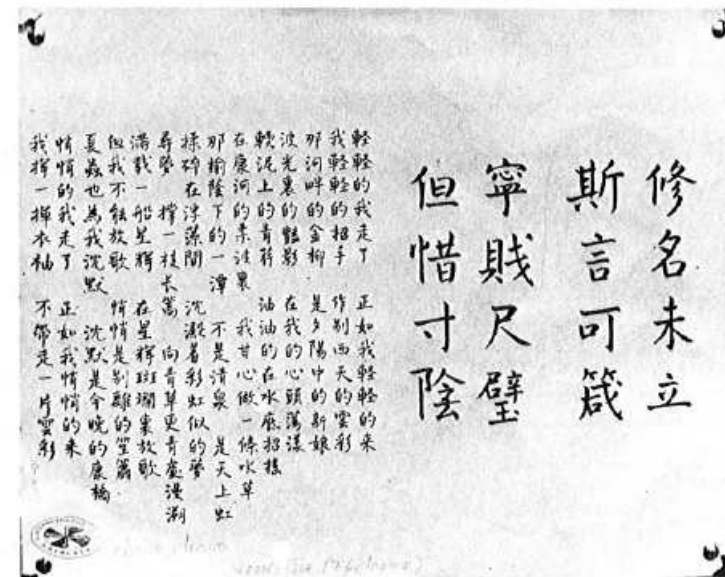 修名未立
斯言可箴
寧賤尺璧
但惜寸陰
軽軽的我走了 正如我軽軽的来
我軽軽的招手 作别西天的雲彩
那河畔的金柳 是夕陽中的新娘
波光裏的豔影 在我的心頭蕩漾
軟泥上的青荇 油油的在水底招搖
在康河的柔波裏 我甘心做一條水草
那榆蔭下的一潭 不是清泉 是天上虹
揉碎在浮藻間 沉澱着彩虹似的夢
尋夢 撐一枝长篙 向青草更青處漫溯
滿載一船星輝 在星輝斑斕裏放歌
但我不能放歌 悄悄是别離的笙簫
夏蟲也為我沉默 沈默是今晚的康橋
悄悄的我走了 正如我悄悄的来
我揮一揮衣袖 不帶走一片雲彩